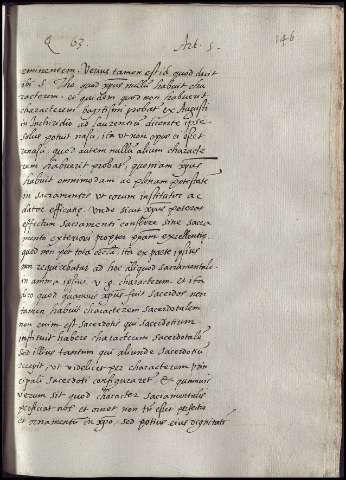 Q 63. Art. 5. 146
eminentem. Verius tamen est id, quod dicit
ibi S. Tho. quod xpus nullũ habuit cha
racterem. et quidem quod non habuerit
characterem baptismi probat ex Augusti
in Inchiridio ad Laurentiũ dicente ipse
solus potuit nasci, ita ut non opus ei esset
renasci. quod autem nullũ alium characte
rem habuerit probat, quoniam xpus
habuit omnimodam ac plenam potestatẽ
in sacramentis ut eorum institutor ac
dator efficatiẽ. Unde sicut xpus poterat
effectum Sacramenti conferre sine sacra
mento exteriori propter suam excellentiã
quod non potest ita ex parte ipsius
non requirebatur ad hoc aliquod sacramentale
in anima ipsius v. g. characterem. et ita
dico quod quamvis xpus fuit sacerdos non
tamen habuit characterem sacerdotalem
non enim est sacerdotis qui sacerdotium
instituit habere characterem sacerdotalẽ
sed illius tantum qui aliunde sacerdotiũ
accepit, ut videlicet per characterem prin
cipali sacerdoti configuraret. et quamvis
verum sit quod character Sacramentalis
perficiat nos et ornet non tñ esset perfectio
et ornamentũ in xpo, sed potius eius dignitati